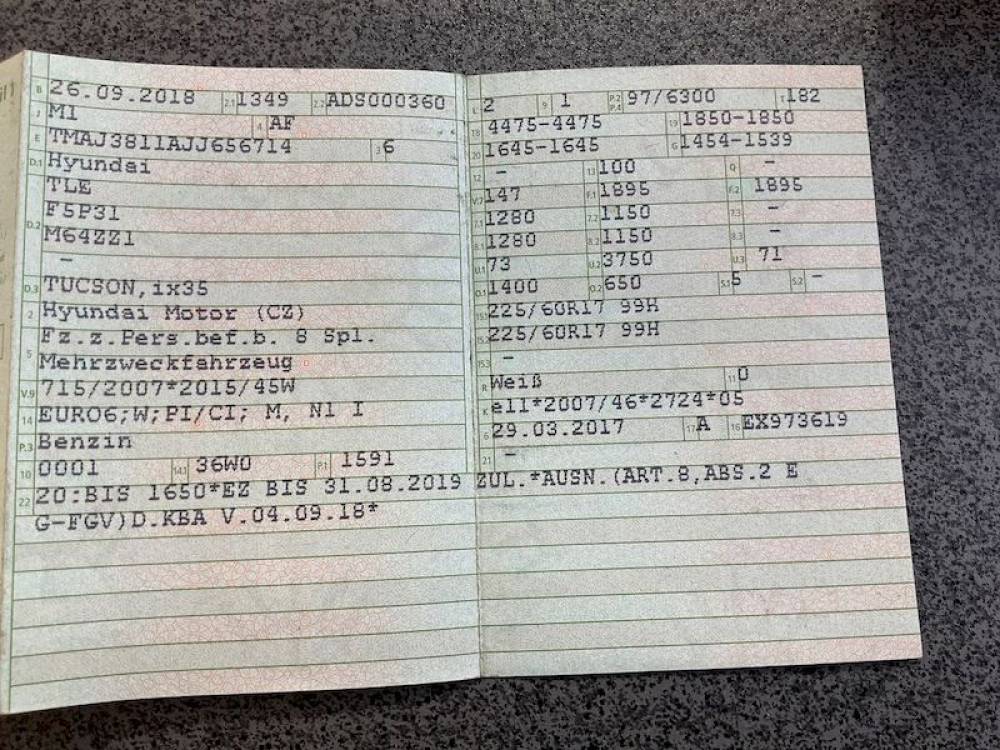 B 26.09.2018 2.1 1349 2.2 ADS000360
J M1 4 AF
E TMAJ3811AJJ656714 3 6
D.1 Hyundai
TLE
D.2 F5P31
M64ZZ1
-
D.3 TUCSON,ix35
2 Hyundai Motor (CZ)
5 Fz.z.Pers.bef.b. 8 Spl.
Mehrzweckfahrzeug
V.9 715/2007*2015/45W
14 EURO6;W;PI/CI; M, N1 I
P.3 Benzin
10 0001 14.1 36W0 P.1 1591
L 2 9 1 P.2 P.4 97/6300 T 182
18 4475-4475 19 1850-1850
20 1645-1645 G 1454-1539
12 - 13 100 Q -
V.7 147 F.1 1895 F.2 1895
7.1 1280 7.2 1150 7.3 -
8.1 1280 8.2 1150 8.3 -
U.1 73 U.2 3750 U.3 71
O.1 1400 O.2 650 S.1 5 S.2 -
15.1 225/60R17 99H
15.2 225/60R17 99H
15.3 -
R Weiß 11 0
K e11*2007/46*2724*05
6 29.03.2017 17 A 16 EX973619
21 -
22 20:BIS 1650*EZ BIS 31.08.2019 ZUL.*AUSN.(ART.8,ABS.2 E
G-FGV)D.KBA V.04.09.18*